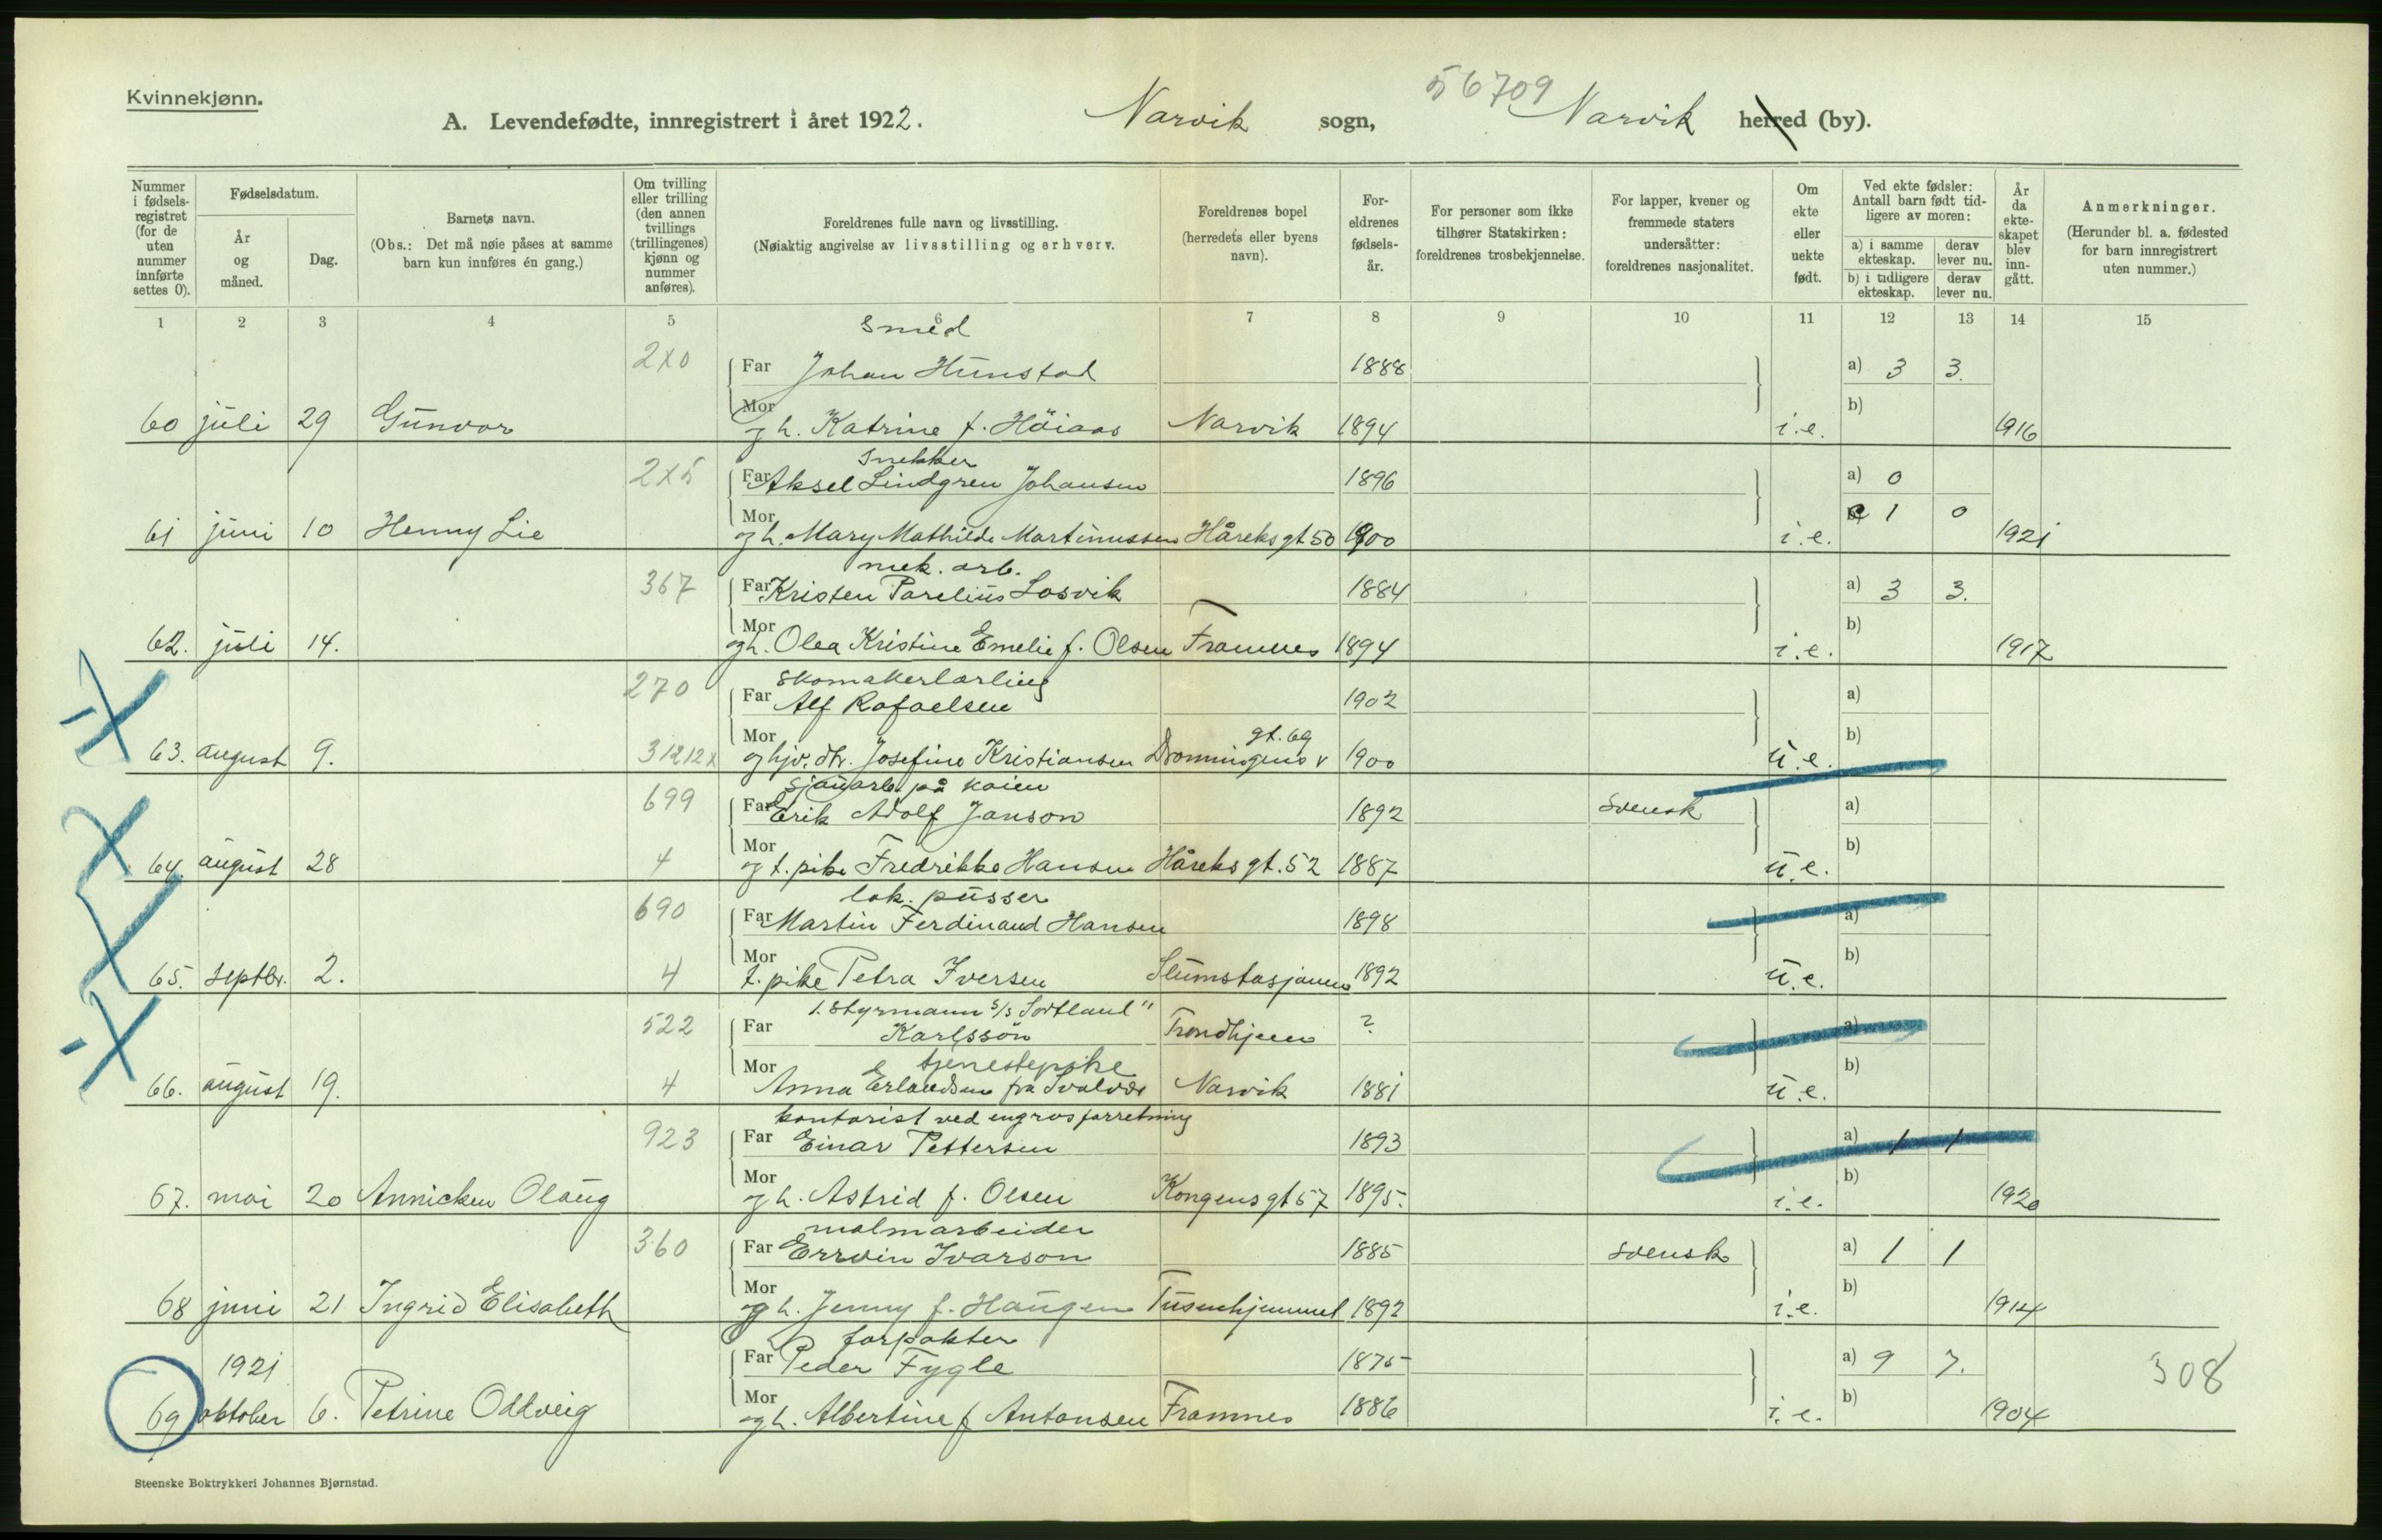 Kvinnekjønn.
56709
A. Levendefødte, innregistrert i året 1922. Narvik sogn, Narvik herred (by).
Nummer i fødselsregistret (for de uten nummer innførte settes 0).
Fødselsdatum.
År og måned.
Dag.
Barnets navn.
(Obs.: Det må nøie påses at samme barn kun innføres én gang.)
Om tvilling eller trilling (den annen tvillings (trillingenes) kjønn og nummer anføres).
Foreldrenes fulle navn og livsstilling.
(Nøiaktig angivelse av livsstilling og erhverv.
Foreldrenes bopel (herredets eller byens navn).
Foreldrenes fødselsår.
For personer som ikke tilhører Statskirken: foreldrenes trosbekjennelse.
For lapper, kvener og fremmede staters undersåtter: foreldrenes nasjonalitet.
Om ekte eller uekte født.
Ved ekte fødsler: Antall barn født tidligere av moren:
a) i samme ekteskap.
derav lever nu.
b) i tidligere ekteskap.
derav lever nu.
År da ekteskapet blev inngått.
Anmerkninger.
(Herunder bl. a. fødested for barn innregistrert uten nummer.)
1 2 3 4 5 6 7 8 9 10 11 12 13 14 15
smed
2x0 Far Johan Hunstad 1888 a) 3 3.
Mor b)
60 juli 29 Gunvor og h. Katrine f. Höiaas Narvik 1894 i.e. 1916
snekker
2x5 Far Aksel Lindgren Johansen 1896 a) 0
Mor b) 1 0
61 juni 10 Henny Lie og h. Mary Mathilde Martinussen Håreks gt 50 1900 i.e. 1921
mek. arb.
367 Far Kristen Parelius Losvik 1884 a) 3 3.
Mor b)
62. juli 14. og h. Olea Kristine Emelie f. Olsen Framnes 1894 i.e. 1917
skomakerlærling
270 Far Alf Rafaelsen 1902 a)
Mor gt. 69 b)
63. august 9. 31212x og hjv. dtr. Josefine Kristiansen Dronningens 1900 u.e.
sjauarb. på kaien
699 Far Erik Adolf Janson 1892 svensk a)
Mor b)
64. august 28 4 og t. pike Fredrikke Hansen Håreks gt. 52 1887 u.e.
lok. pusser
690 Far Martin Ferdinand Hansen 1898 a)
Mor b)
65. septbr. 2. 4 t. pike Petra Iversen Slumstasjonen 1892 u.e.
1. styrmann s/s Sortland"
522 Far Karlsson Trondhjem ? a)
Mor tjenestepike b)
66. august 19. 4 Anna Erlandsen fra Svolvær Narvik 1881 u.e.
kontorist ved engrosforretning
923 Far Einar Pettersen 1893 a) 1 1
Mor b)
67. mai 20 Annicken Olaug og h. Astrid f. Olsen Kongens gt 57 1895. i.e. 1920
malmarbeider
360 Far Ervin Ivarson 1885 svensk a) 1 1
Mor b)
68 juni 21 Ingrid Elisabeth og h. Jenny f. Haugen Tusenhjemmet 1892 i.e. 1914
forpakter
1921 Far Peder Fygle 1875 a) 9 7. 308
Mor b)
69 oktober 6. Petrine Oddveig og h. Albertine f Antonsen Framnes 1886 i.e. 1904
Steenske Boktrykkeri Johannes Bjørnstad.